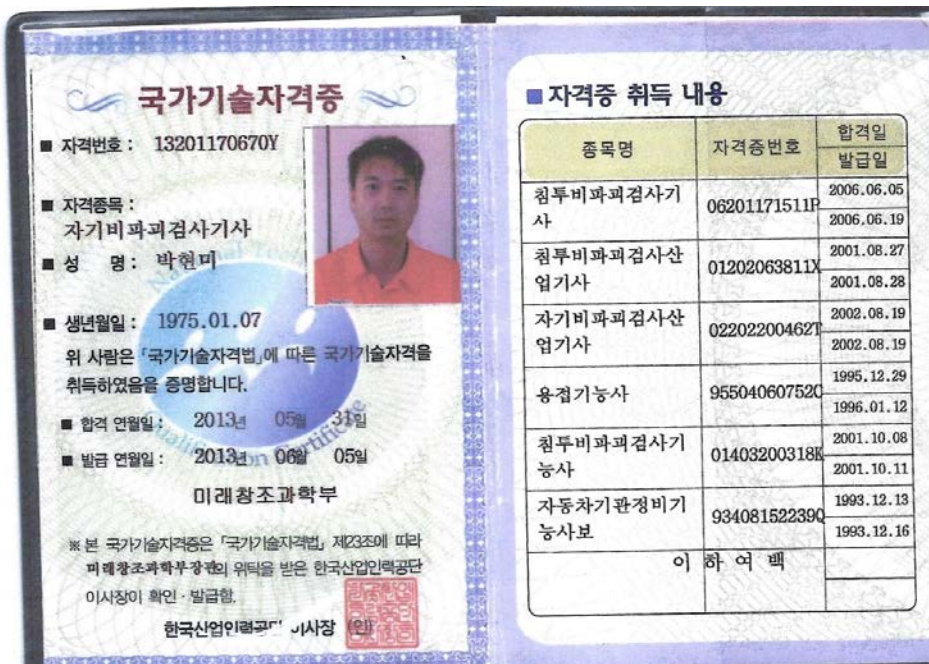 국가기술자격증
■ 자격번호 : 13201170670Y
■ 자격종목 :
자기비파괴검사기사
■ 성 명 : 박현미
■ 생년월일 : 1975.01.07
위 사람은 「국가기술자격법」에 따른 국가기술자격을
취득하였음을 증명합니다.
■ 합격 연월일 : 2013년 05월 31일
■ 발급 연월일 : 2013년 06월 05일
미래창조과학부
※ 본 국가기술자격증은 「국가기술자격법」 제23조에 따라
미래창조과학부장관의 위탁을 받은 한국산업인력공단
이사장이 확인 · 발급함.
한국산업인력공단 이사장 (인)
■ 자격증 취득 내용
종목명 자격증번호 합격일
발급일
침투비파괴검사기 06201171511P 2006.06.05
사 2006.06.19
침투비파괴검사산 01202063811X 2001.08.27
업기사 2001.08.28
자기비파괴검사산 02202200462T 2002.08.19
업기사 2002.08.19
용접기능사 95504060752C 1995.12.29
1996.01.12
침투비파괴검사기 01403200318K 2001.10.08
능사 2001.10.11
자동차기관정비기 93408152239Q 1993.12.13
능사보 1993.12.16
이 하 여 백